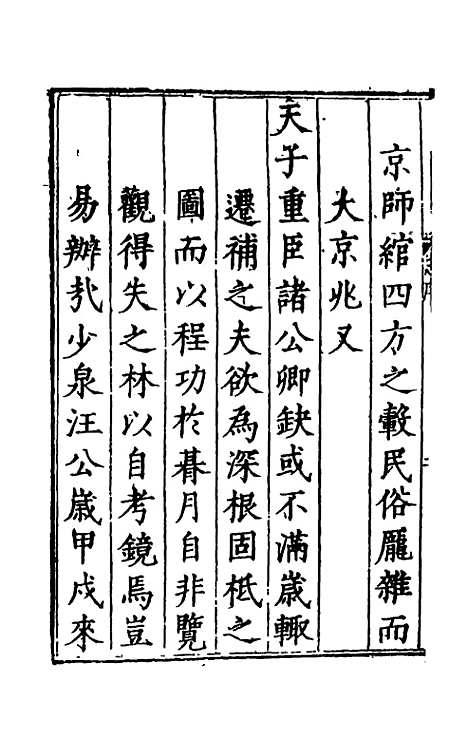 京師綰四方之轂民俗龎雜而
大京兆又
天子重臣諸公卿缺或不滿歲輙
遷補之夫欲為深根固柢之
圖而以程功於朞月自非覽
觀得失之林以自考鏡焉豈
易辦㢤少泉汪公歲甲戍來